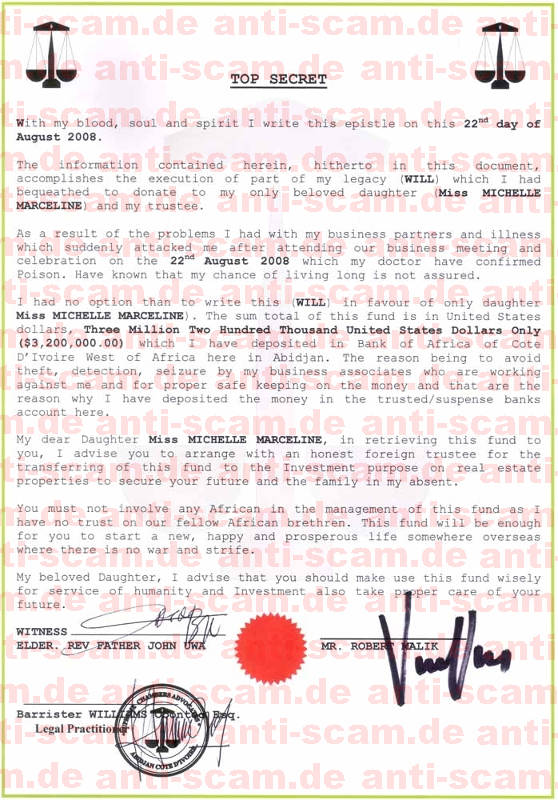 TOP SECRET
With my blood, soul and spirit I write this epistle on this 22nd day of
August 2008.
The information contained herein, hitherto in this document,
accomplishes the execution of part of my legacy (WILL) which I had
bequeathed to donate to my only beloved daughter (Miss MICHELLE
MARCELINE) and my trustee.
As a result of the problems I had with my business partners and illness
which suddenly attacked me after attending our business meeting and
celebration on the 22nd August 2008 which my doctor have confirmed
Poison. Have known that my chance of living long is not assured.
I had no option than to write this (WILL) in favour of only daughter
Miss MICHELLE MARCELINE). The sum total of this fund is in United States
dollars, Three Million Two Hundred Thousand United States Dollars Only
($3,200,000.00) which I have deposited in Bank of Africa of Cote
D'Ivoire West of Africa here in Abidjan. The reason being to avoid
theft, detection, seizure by my business associates who are working
against me and for proper safe keeping on the money and that are the
reason why I have deposited the money in the trusted/suspense banks
account here.
My dear Daughter Miss MICHELLE MARCELINE, in retrieving this fund to
you, I advise you to arrange with an honest foreign trustee for the
transferring of this fund to the Investment purpose on real estate
properties to secure your future and the family in my absent.
You must not involve any African in the management of this fund as I
have no trust on our fellow African brethren. This fund will be enough
for you to start a new, happy and prosperous life somewhere overseas
where there is no war and strife.
My beloved Daughter, I advise that you should make use this fund wisely
for service of humanity and Investment also take proper care of your
future.
WITNESS
ELDER. REV FATHER JOHN UWA
MR. ROBERT MALIK
Barrister WILLIAMS Esq.
Legal Practitioner
CHAMBERS ADVOCATE
ABIDJAN COTE D'IVOIRE
anti-scam.de anti-scam.de